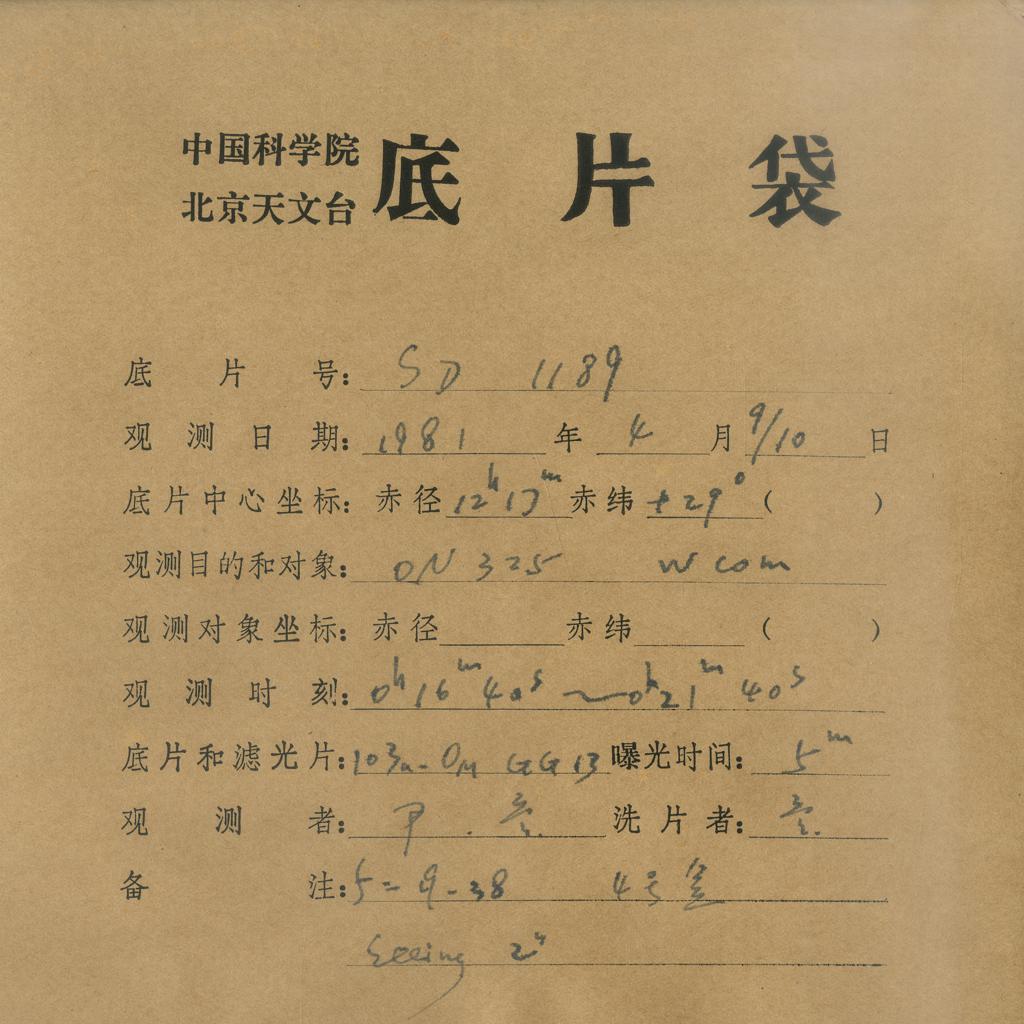 中国科学院
北京天文台
底片袋
底片号: SD 1189
观测日期: 1981年4月9/10日
底片中心坐标: 赤径12h17m赤纬+29°( )
观测目的和对象: ON 325 W com
观测对象坐标: 赤径 赤纬 ( )
观测时刻: 0h16m40s~0h21m40s
底片和滤光片: 103a-O GG13 曝光时间: 5m
观测者: 洗片者:
备注: 4号盒
Seeing 2"